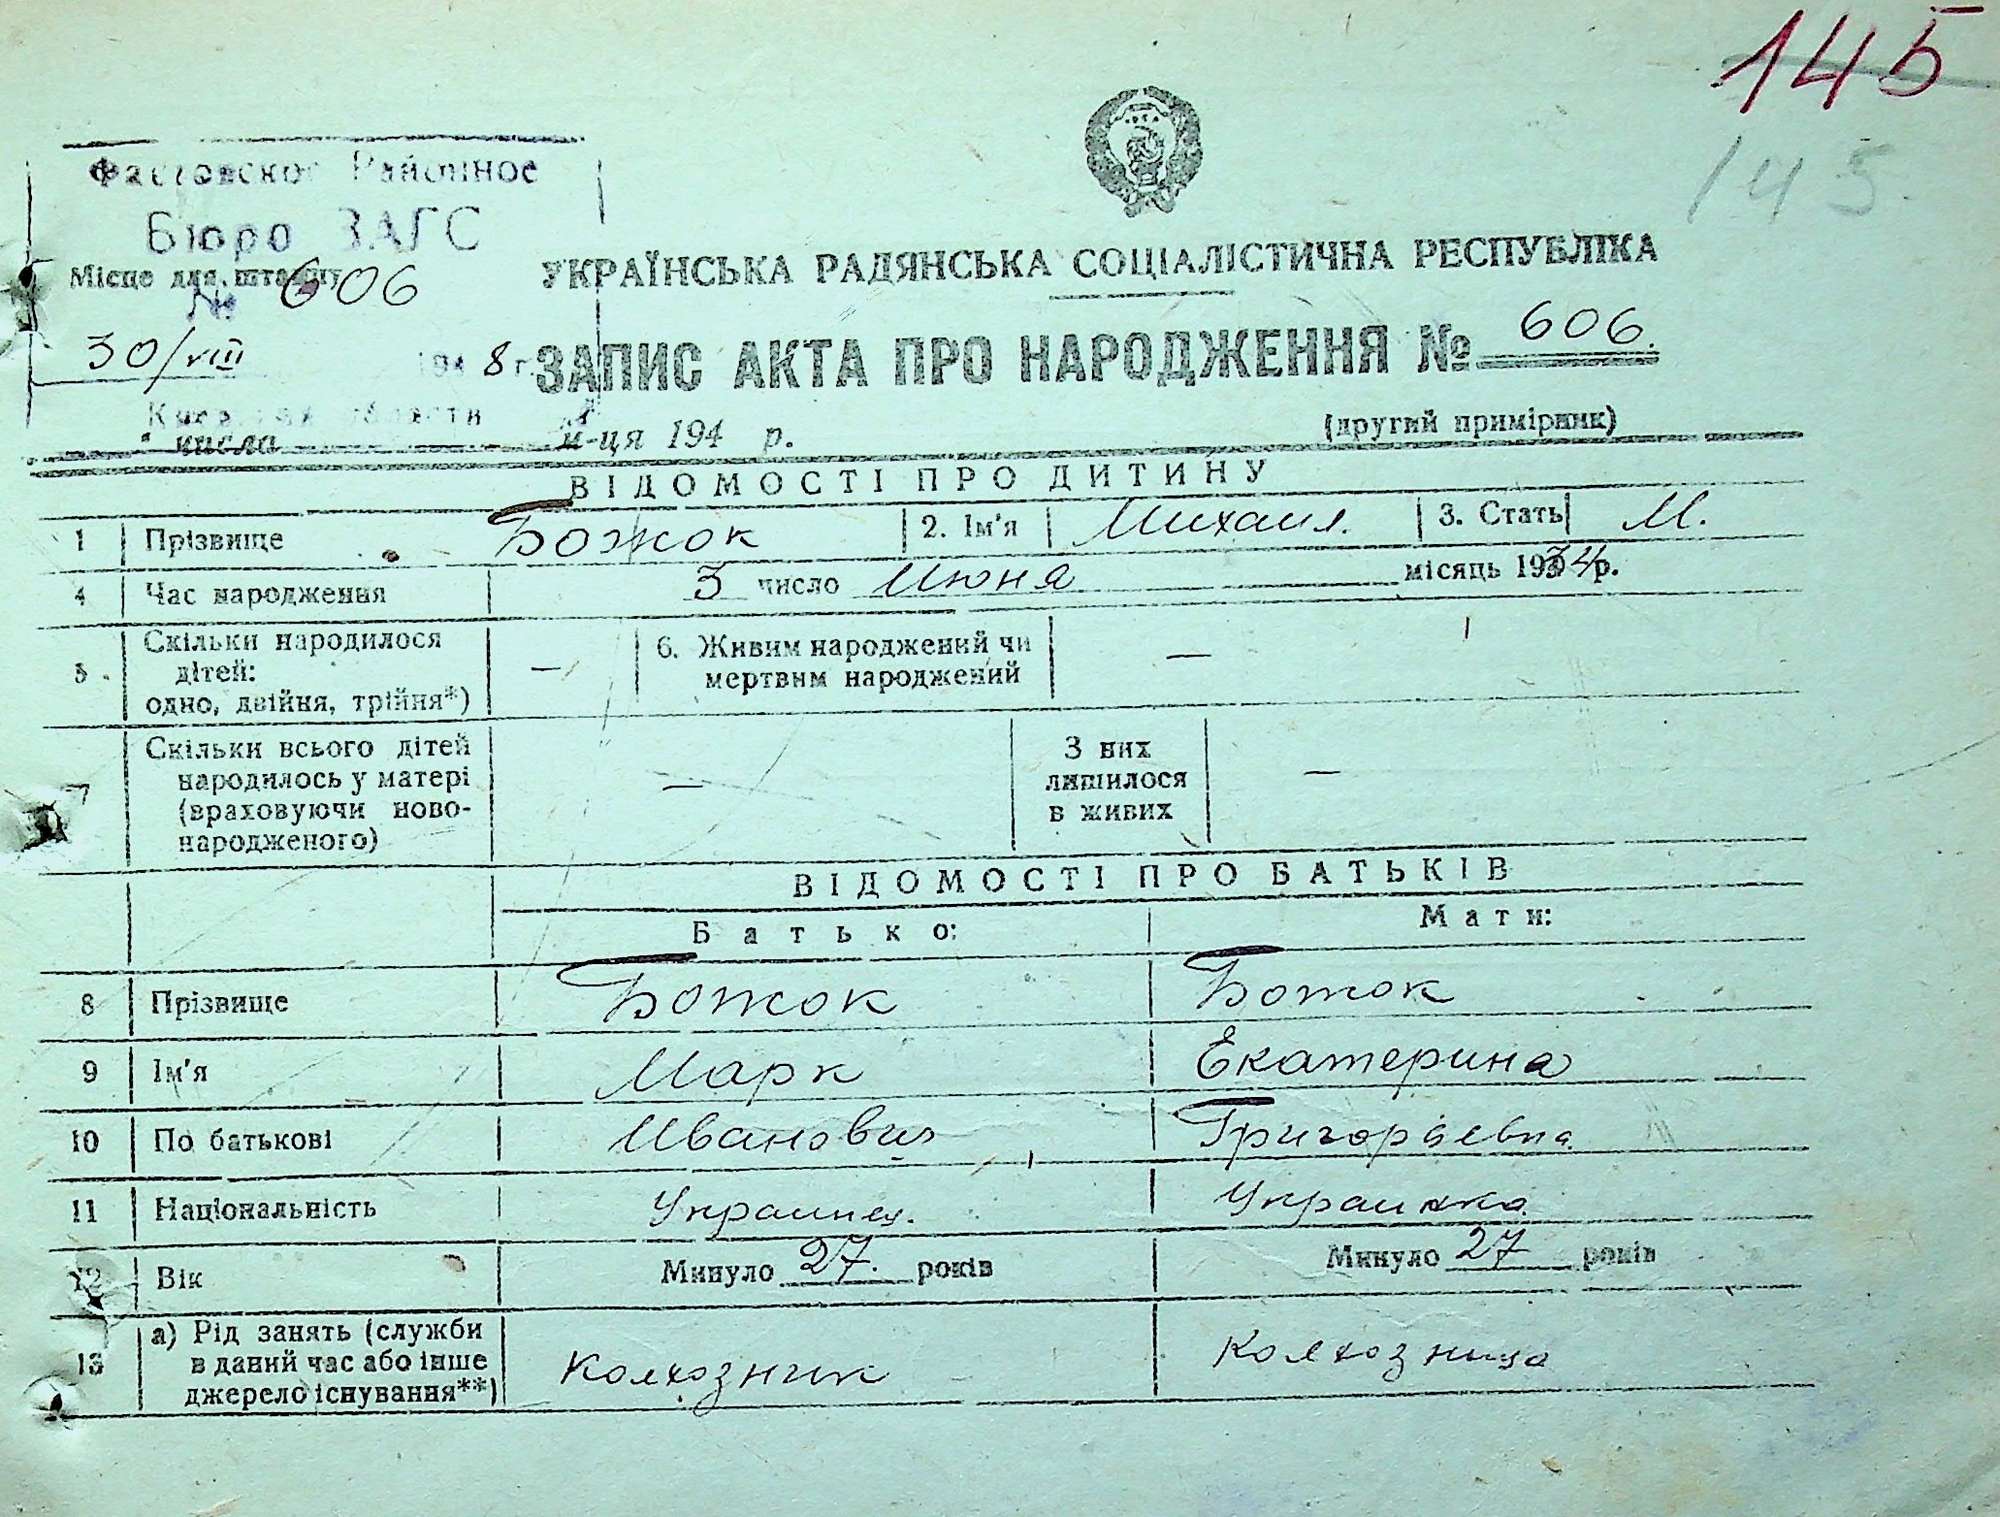 145
145.
Фастовское Районное
Бюро ЗАГС
Місце для штампу
№ 606
30/VIII 1948 г.
Киевская области
УКРАЇНСЬКА РАДЯНСЬКА СОЦІАЛІСТИЧНА РЕСПУБЛІКА
ЗАПИС АКТА ПРО НАРОДЖЕННЯ № 606.
числа м-ця 194 р. (другий примірник)
ВІДОМОСТІ ПРО ДИТИНУ
1 Прізвище Божок 2. Ім'я Михаил. 3. Стать М.
4 Час народження 3 число Июня місяць 1934 р.
5 Скільки народилося дітей: одно, двійня, трійня*) — 6. Живим народжений чи мертвим народжений —
7 Скільки всього дітей народилось у матері (враховуючи новонародженого) — З них лишилося в живих —
ВІДОМОСТІ ПРО БАТЬКІВ
Батько: Мати:
8 Прізвище Божок Божок
9 Ім'я Марк Екатерина
10 По батькові Иванович Григорьевна.
11 Національність Украинец. Украинка.
12 Вік Минуло 27. років Минуло 27 років
13 а) Рід занять (служби в даний час або інше джерело існування**) Колхозник Колхозница